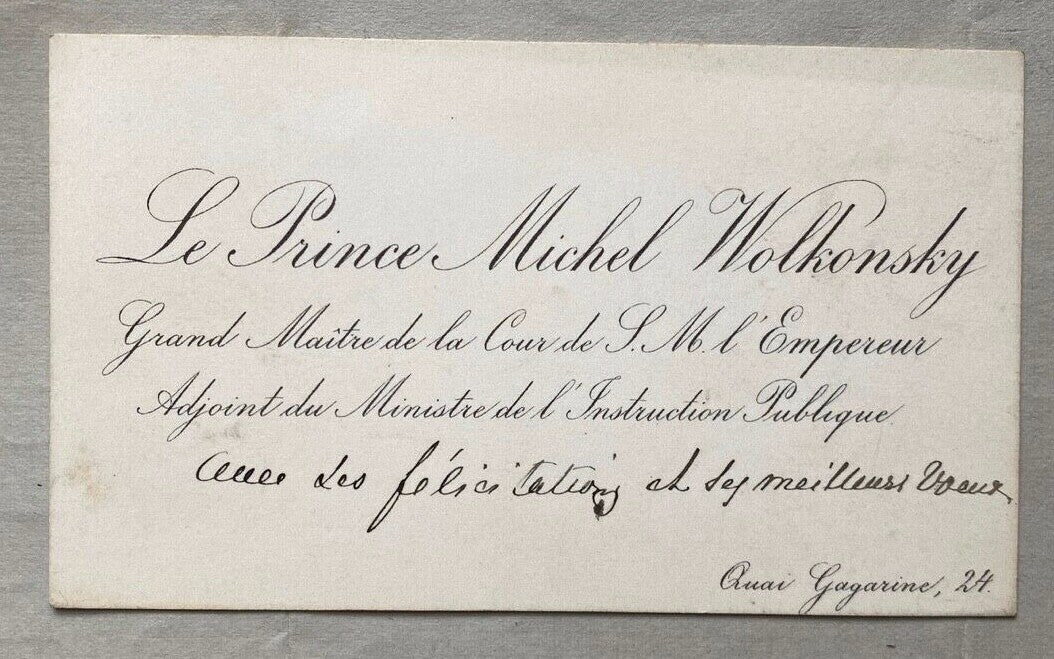 Le Prince Michel Wolkonsky
Grand Maître de la Cour de S. M. l'Empereur
Adjoint du Ministre de l'Instruction Publique
avec ses félicitations et ses meilleurs voeux
Quai Gagarine, 24.